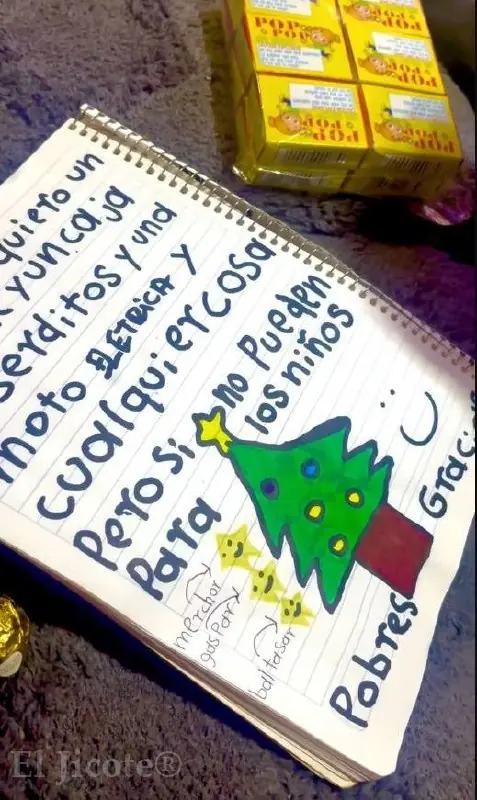 quiero un
Y un caja
serditos y una
moto ELETRICA y
cualquier cosa
Pero si no Pueden
Para los niños
Pobres Graci
merchor
gaspar
baltasar
POP
POP
El Jicote®